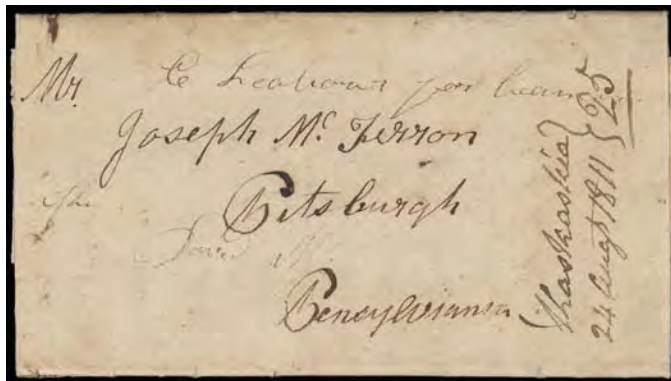 Mr.
Joseph Mc. Ferron
Pitsburgh
Pencylvianna
Kaskaskia
24 Augt 1811 } 25